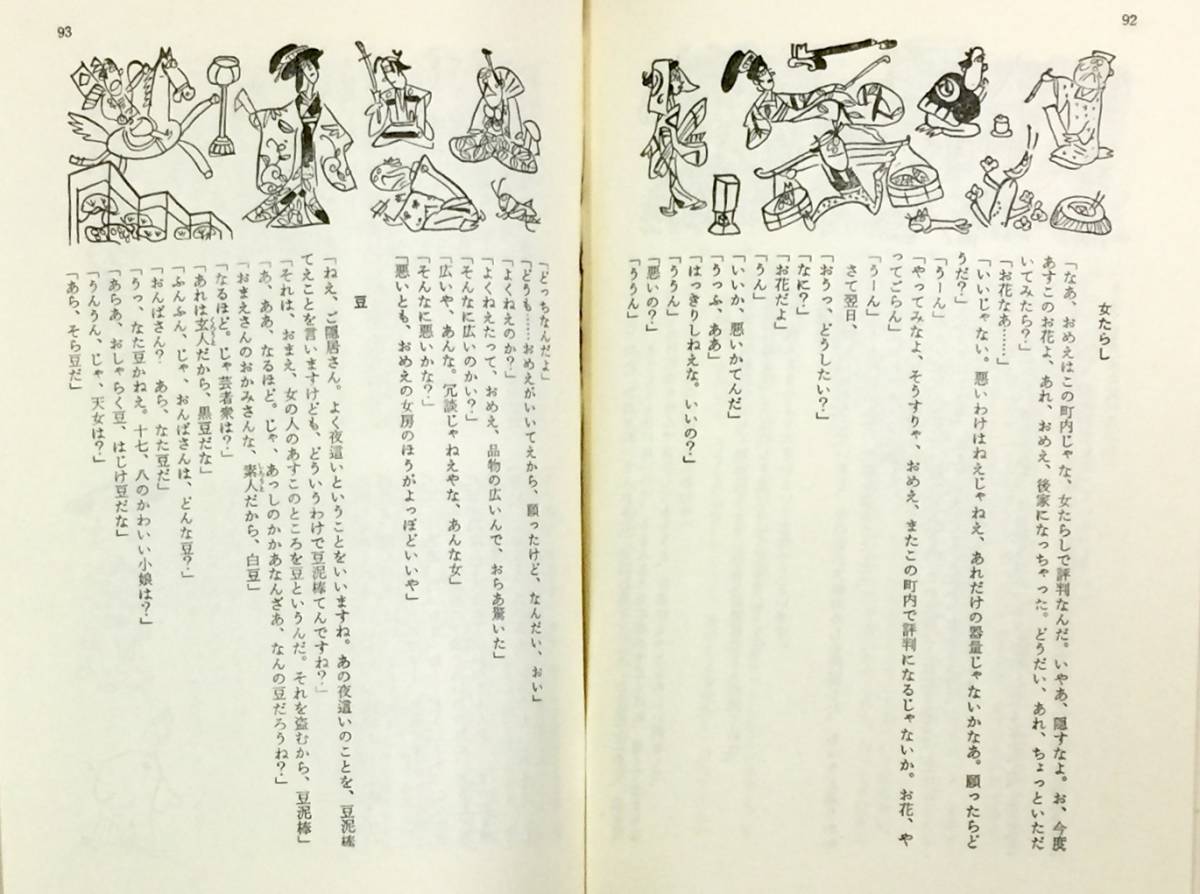 92
女たらし
「なあ、おめえはこの町内じゃな、女たらしで評判なんだ。いやあ、隠すなよ。お、今度
あすこのお花よ、あれ、おめえ、後家になっちゃった。どうだい、あれ、ちょっといただ
いてみたら?」
「お花なあ……」
「いいじゃない。悪いわけはねえじゃねえ、あれだけの器量じゃないかなあ。願ったらど
うだ?」
「うーん」
「やってみなよ、そうすりゃ、おめえ、またこの町内で評判になるじゃないか。お花、や
ってごらん」
「うーん」
さて翌日、
「おうっ、どうしたい?」
「なに?」
「お花だよ」
「うん」
「いいか、悪いかてんだ」
「うっふ、ああ」
「はっきりしねえな。いいの?」
「ううん」
「悪いの?」
「ううん」
93
「どっちなんだよ」
「どうも……おめえがいいてえから、願ったけど、なんだい、おい」
「よくねえのか?」
「よくねえたって、おめえ、品物の広いんで、おらあ驚いた」
「そんなに広いのかい?」
「広いや、あんな。冗談じゃねえやな、あんな女」
「そんなに悪いかな?」
「悪いとも、おめえの女房のほうがよっぽどいいや」
豆
「ねえ、ご隠居さん。よく夜這いということをいいますね。あの夜這いのことを、豆泥棒
てえことを言いますけども、どういうわけで豆泥棒てんですね?」
「それは、おまえ、女の人のあすこのところを豆というんだ。それを盗むから、豆泥棒」
「あ、ああ、なるほど。じゃ、あっしのかかあなんざあ、なんの豆だろうね?」
「おまえさんのおかみさんな、素人だから、白豆」
「なるほど。じゃ芸者衆は?」
「あれは玄人だから、黒豆だな」
「ふんふん、じゃ、おんばさんは、どんな豆?」
「おんばさん? あら、なた豆だ」
「うっ、なた豆かねえ。十七、八のかわいい小娘は?」
「あらあ、おしゃらく豆、はじけ豆だな」
「うんうん、じゃ、天女は?」
「あら、そら豆だ」